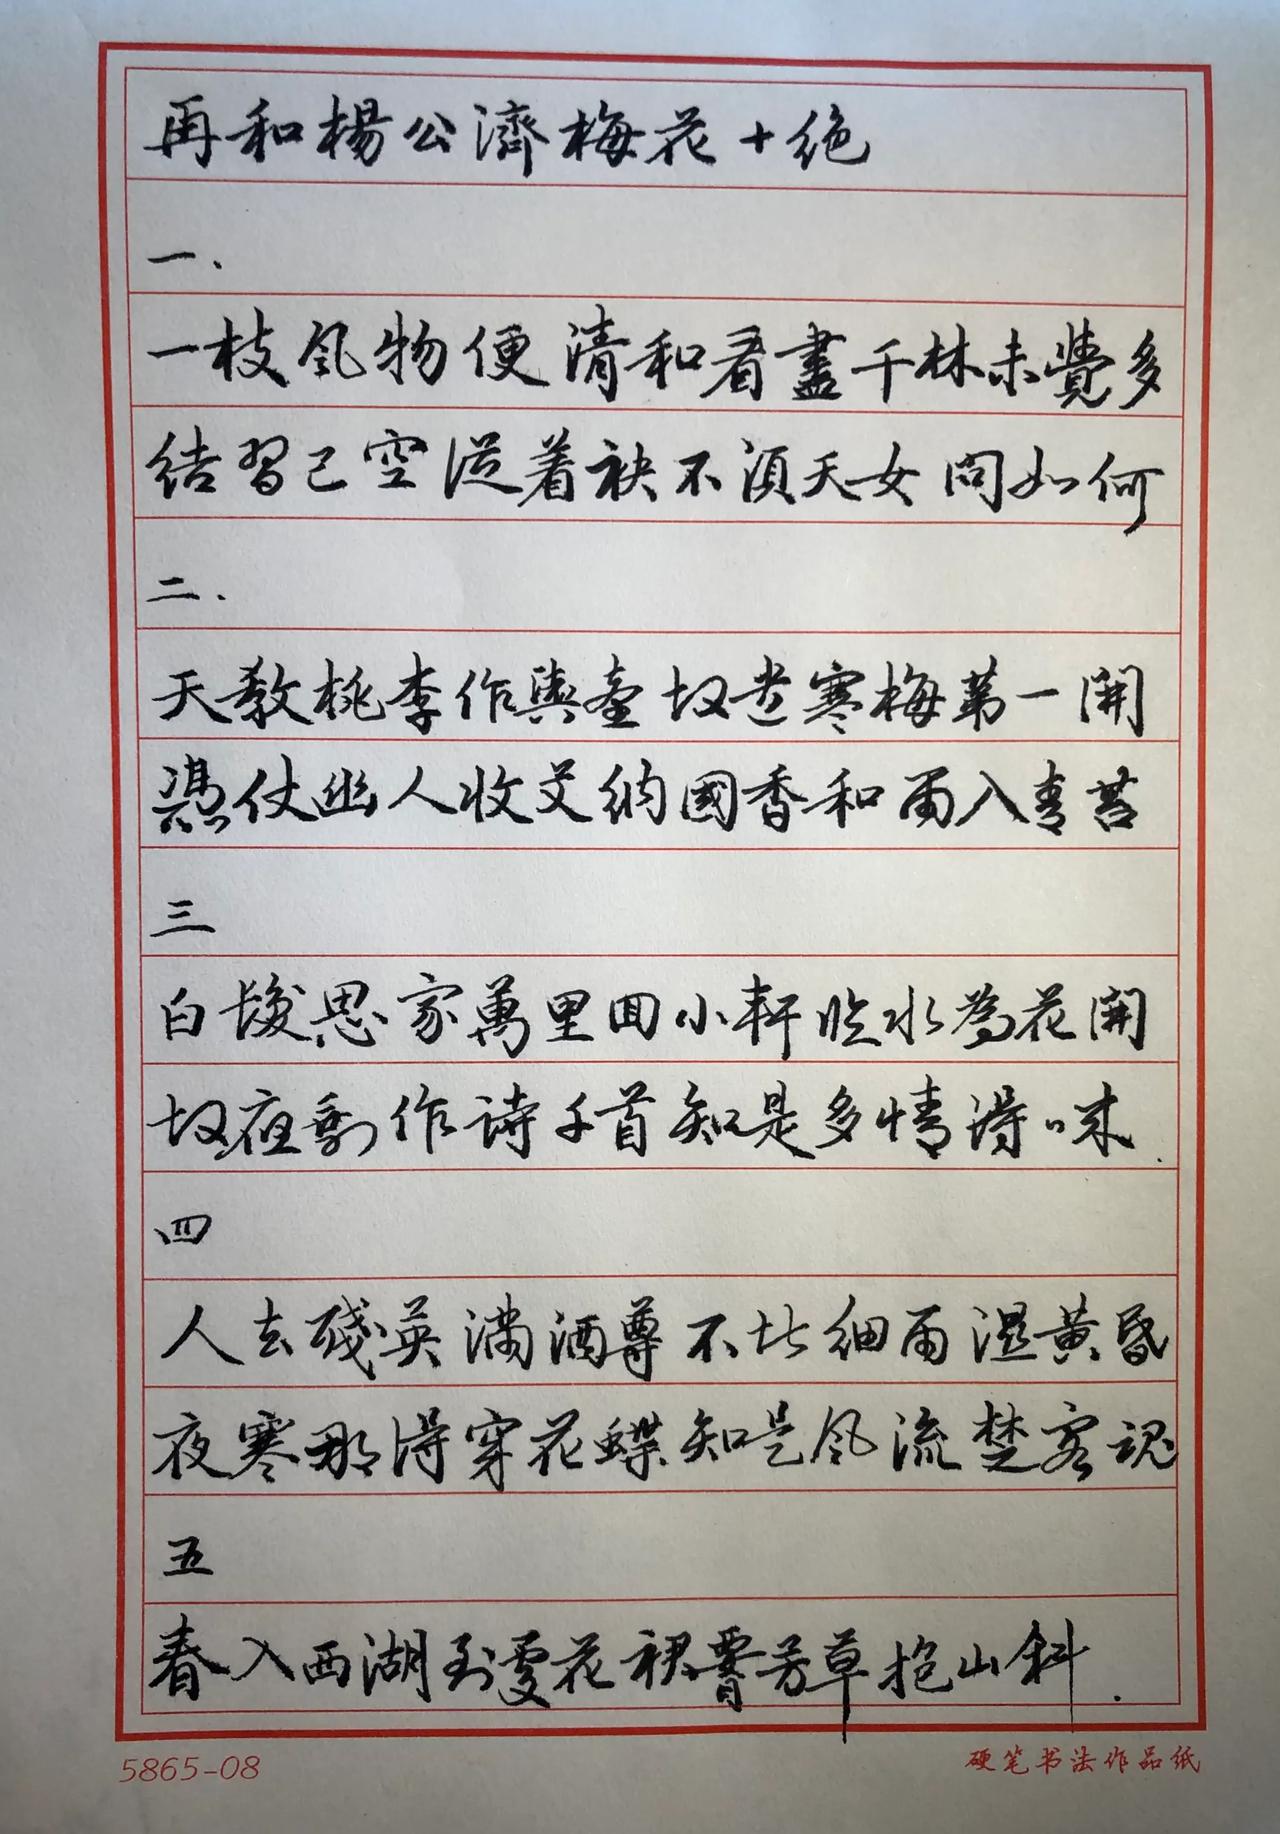 再和楊公濟梅花十绝
一.
一枝風物便清和看盡千林未覺多
结習已空從着袂不須天女問如何
二.
天教桃李作輿臺故遣寒梅第一開
憑仗幽人收艾納國香和雨入青苔
三
白髮思家萬里回小軒臨水為花開
故應剩作詩千首知是多情得味
四
人去殘英滿酒尊不比細雨濕黃昏
夜寒那得穿花蝶知是風流楚客魂
五
春入西湖到處花裙腰芳草抱山斜.
5865-08
硬笔书法作品纸